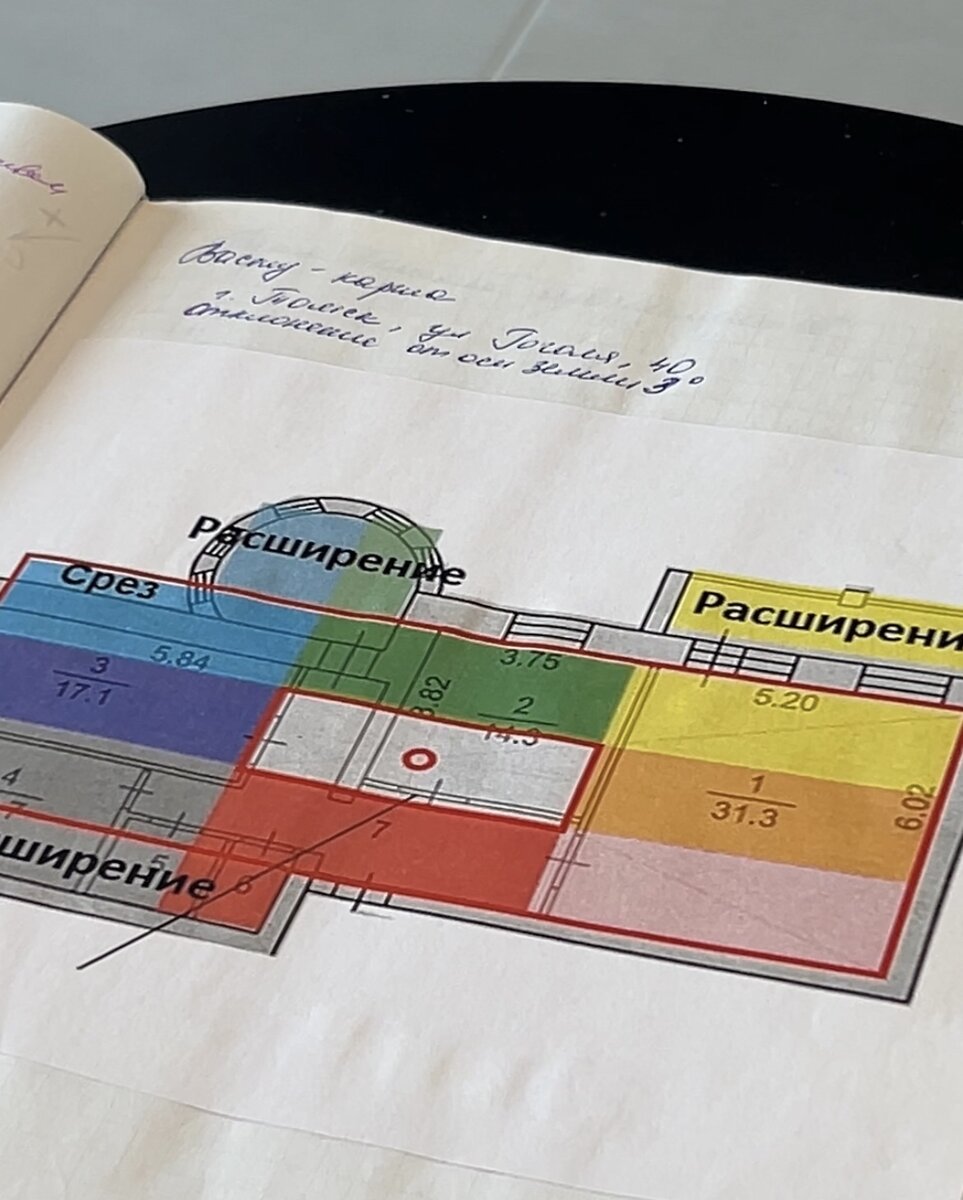 Васту - карта
г. Томск, ул Гоголя, 40
отклонение от оси земли 3°
Расширение
Срез
Расширени
3.75
5.84
3
17.1
3.82
2
14.3
5.20
1
31.3
6.02
4
7
7
ширение
5
6